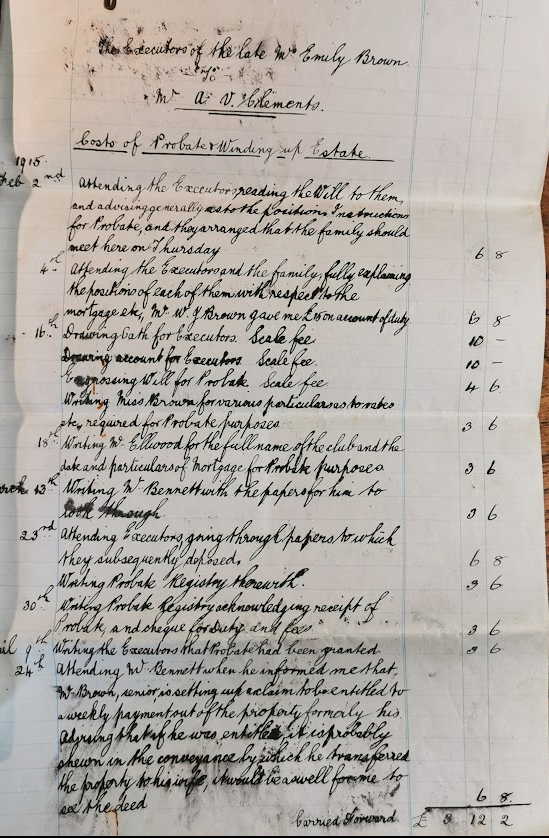 The Executors of the late Mrs Emily Brown.
To
Mr A. V. Clements.
Costs of Probate & Winding up Estate.
1915.
Feb 2nd Attending the Executors reading the Will to them,
and advising generally as to the position Instructions
for Probate, and they arranged that the family should
meet here on Thursday 6 8
4th Attending the Executors and the family, fully explaining
the positions of each of them with respect to the
mortgage etc, Mr W. J Brown gave me on account of duty 6 8
16th Drawing Oath for Executors. Scale fee 10 –
Drawing account for Executors Scale fee. 10 –
Engrossing Will for Probate Scale fee 4 6
Writing Miss Brown for various particulars as to rates
etc, required for Probate purposes 3 6
18th Writing Mr Ellwood for the full name of the club and the
date and particulars of Mortgage for Probate purposes 3 6
arch 13th Writing Mr Bennett with the papers for him to
look through 3 6
23rd Attending Executors, going through papers to which
they subsequently deposed. 6 8
Writing Probate Registry therewith. 3 6
30th Writing Probate Registry acknowledging receipt of
Probate, and cheque for duty and fees 3 6
il 9th Writing the Executors that Probate had been granted 3 6
24th Attending Mr Bennett when he informed me that,
Mr Brown, senior is setting up a claim to be entitled to
a weekly payment out of the property formerly his.
Advising that if he was entitled, it is probably
shewn in the conveyance by which he transferred
the property to his wife, it would be as well for me to
see the deed 6 8.
Carried Forward. £ 3 12 2